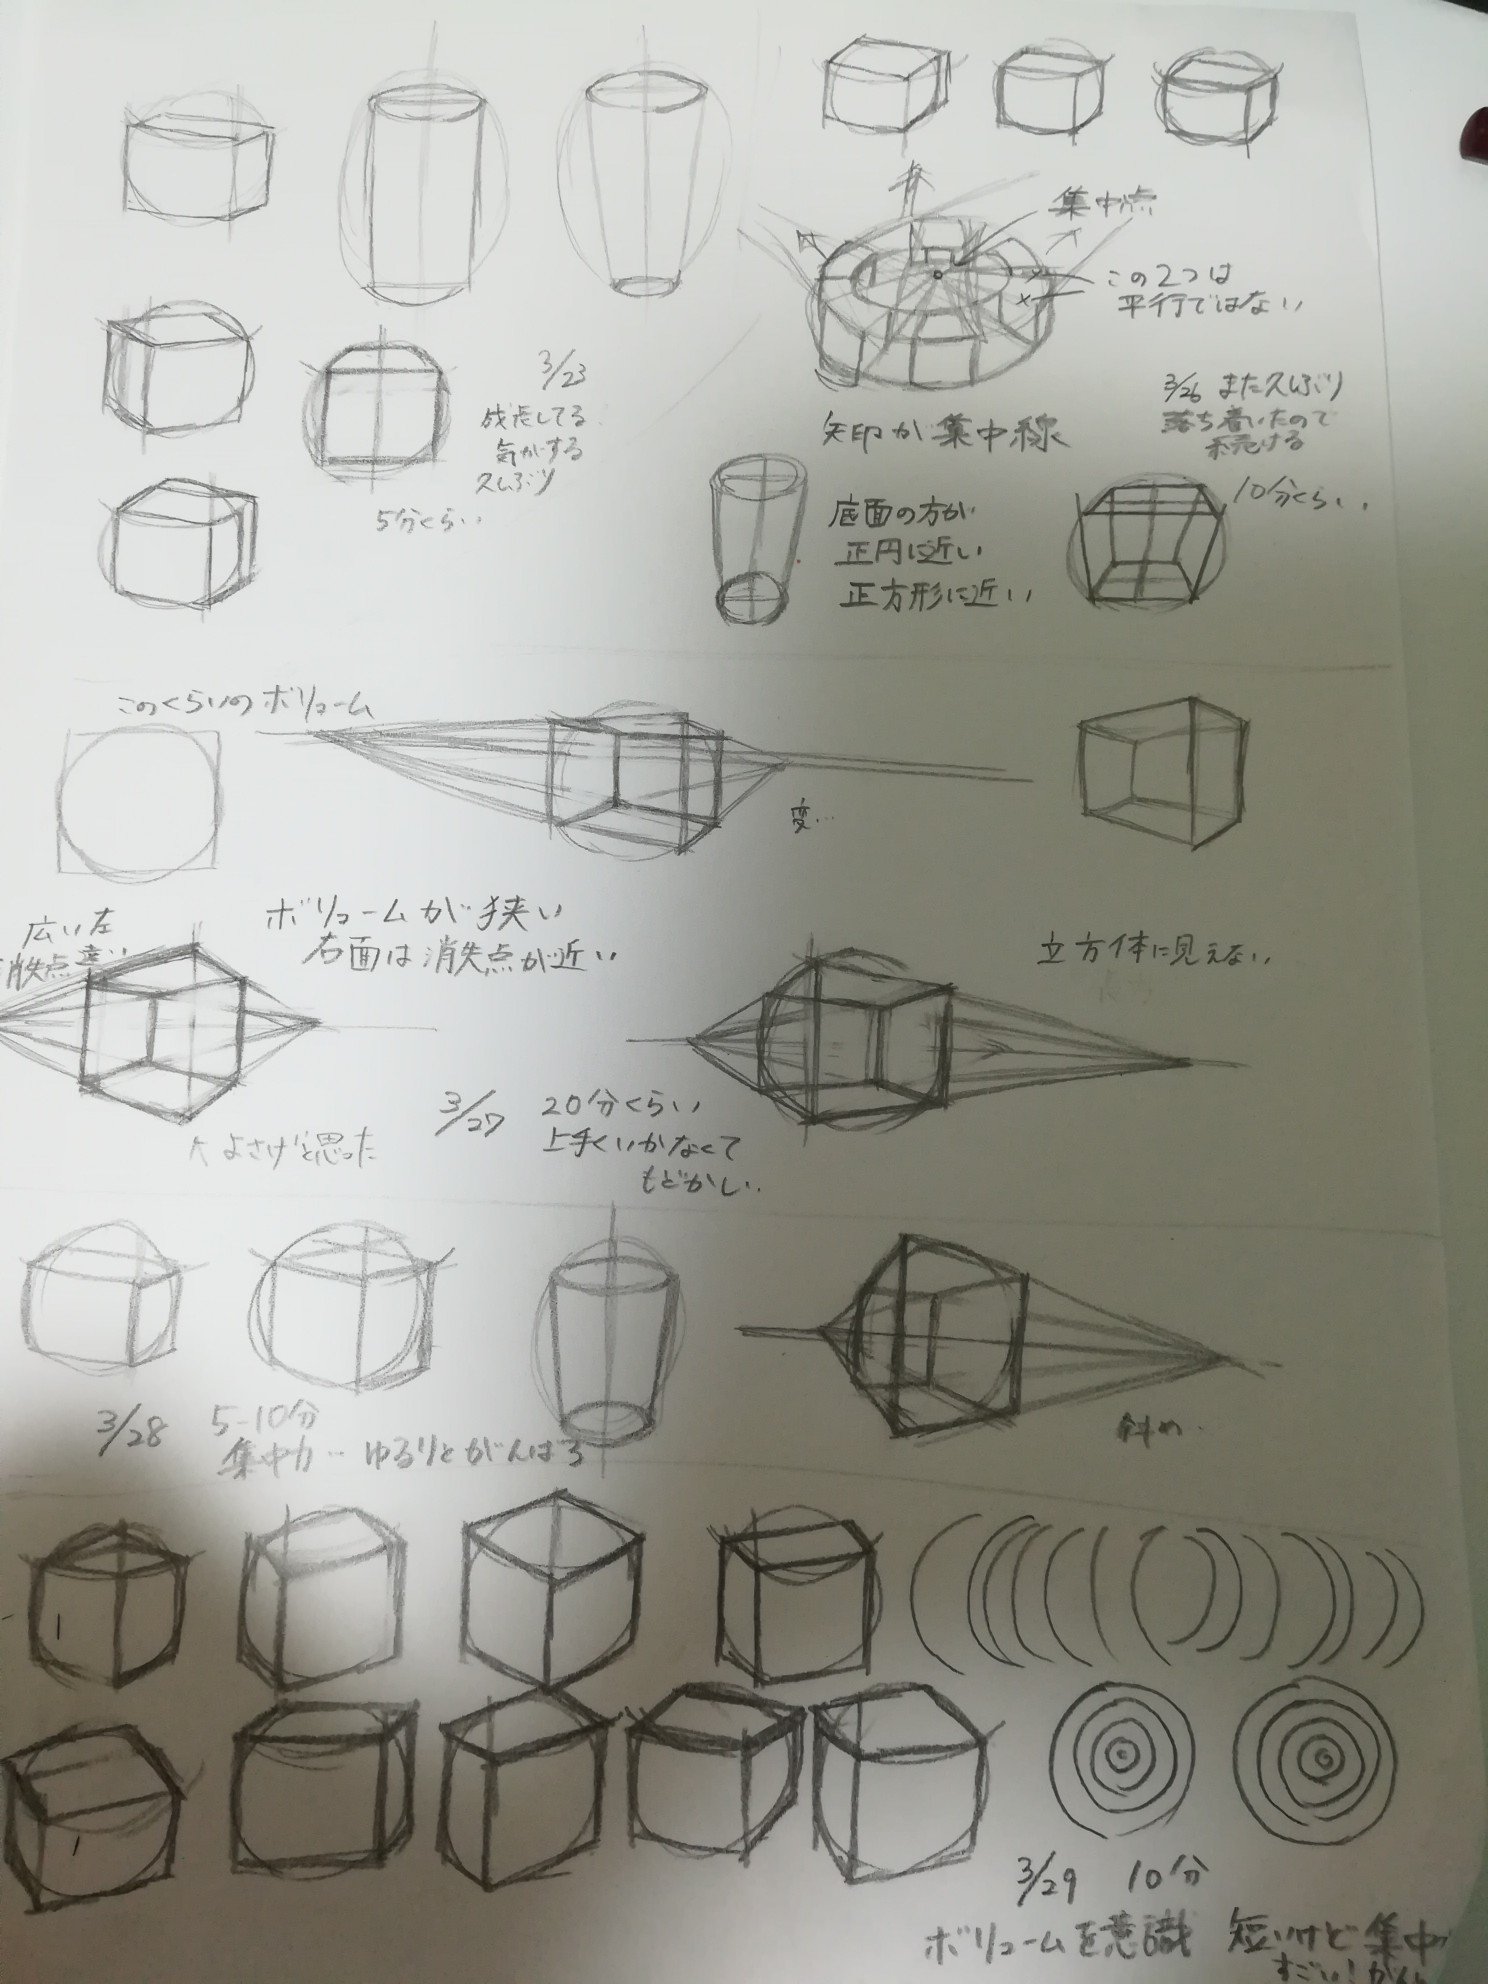 集中点
この2つは
平行ではない
3/23
成長してる
気がする
久しぶり
5分くらい
矢印が集中線
3/26 また久しぶり
落ち着いたので
続ける
10分くらい.
底面の方が
正円に近い
正方形に近い
このくらいのボリューム
変…
広い左
消失点遠い
ボリュームが狭い
右面は消失点が近い
立方体に見えない
よさげと思った
3/27 20分くらい
上手くいかなくて
もどかしい.
3/28 5-10分
集中力… ゆるりとがんばろ
斜め.
3/29 10分
ボリュームを意識 短いけど集中
すごい!